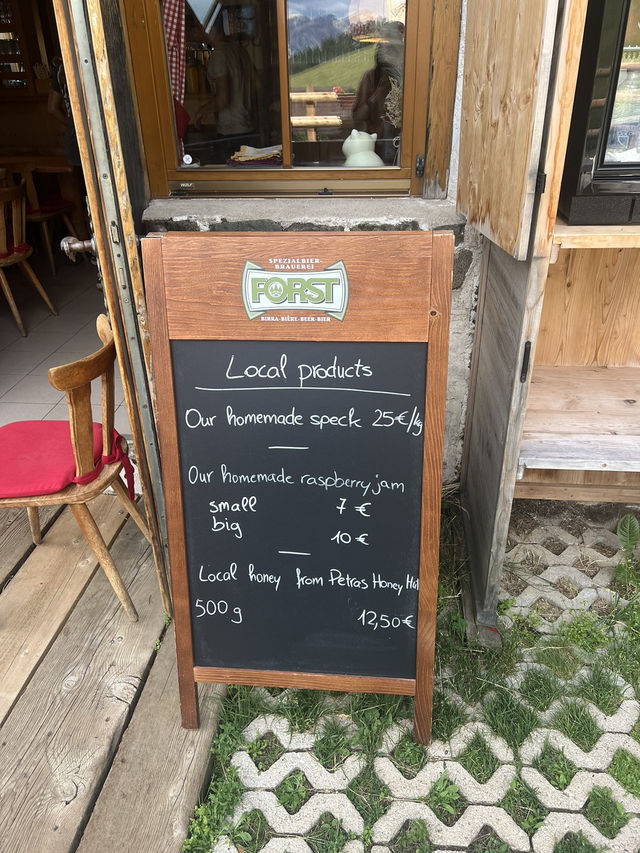 WOLF
SPEZIALBIER-
BRAUEREI
FORST
BIRRA·BIÈRE·BEER·BIER
Local products
Our homemade speck 25€/kg
Our homemade raspberry jam
small 7 €
big 10 €
Local honey from Petras Honey Hut
500g 12,50€